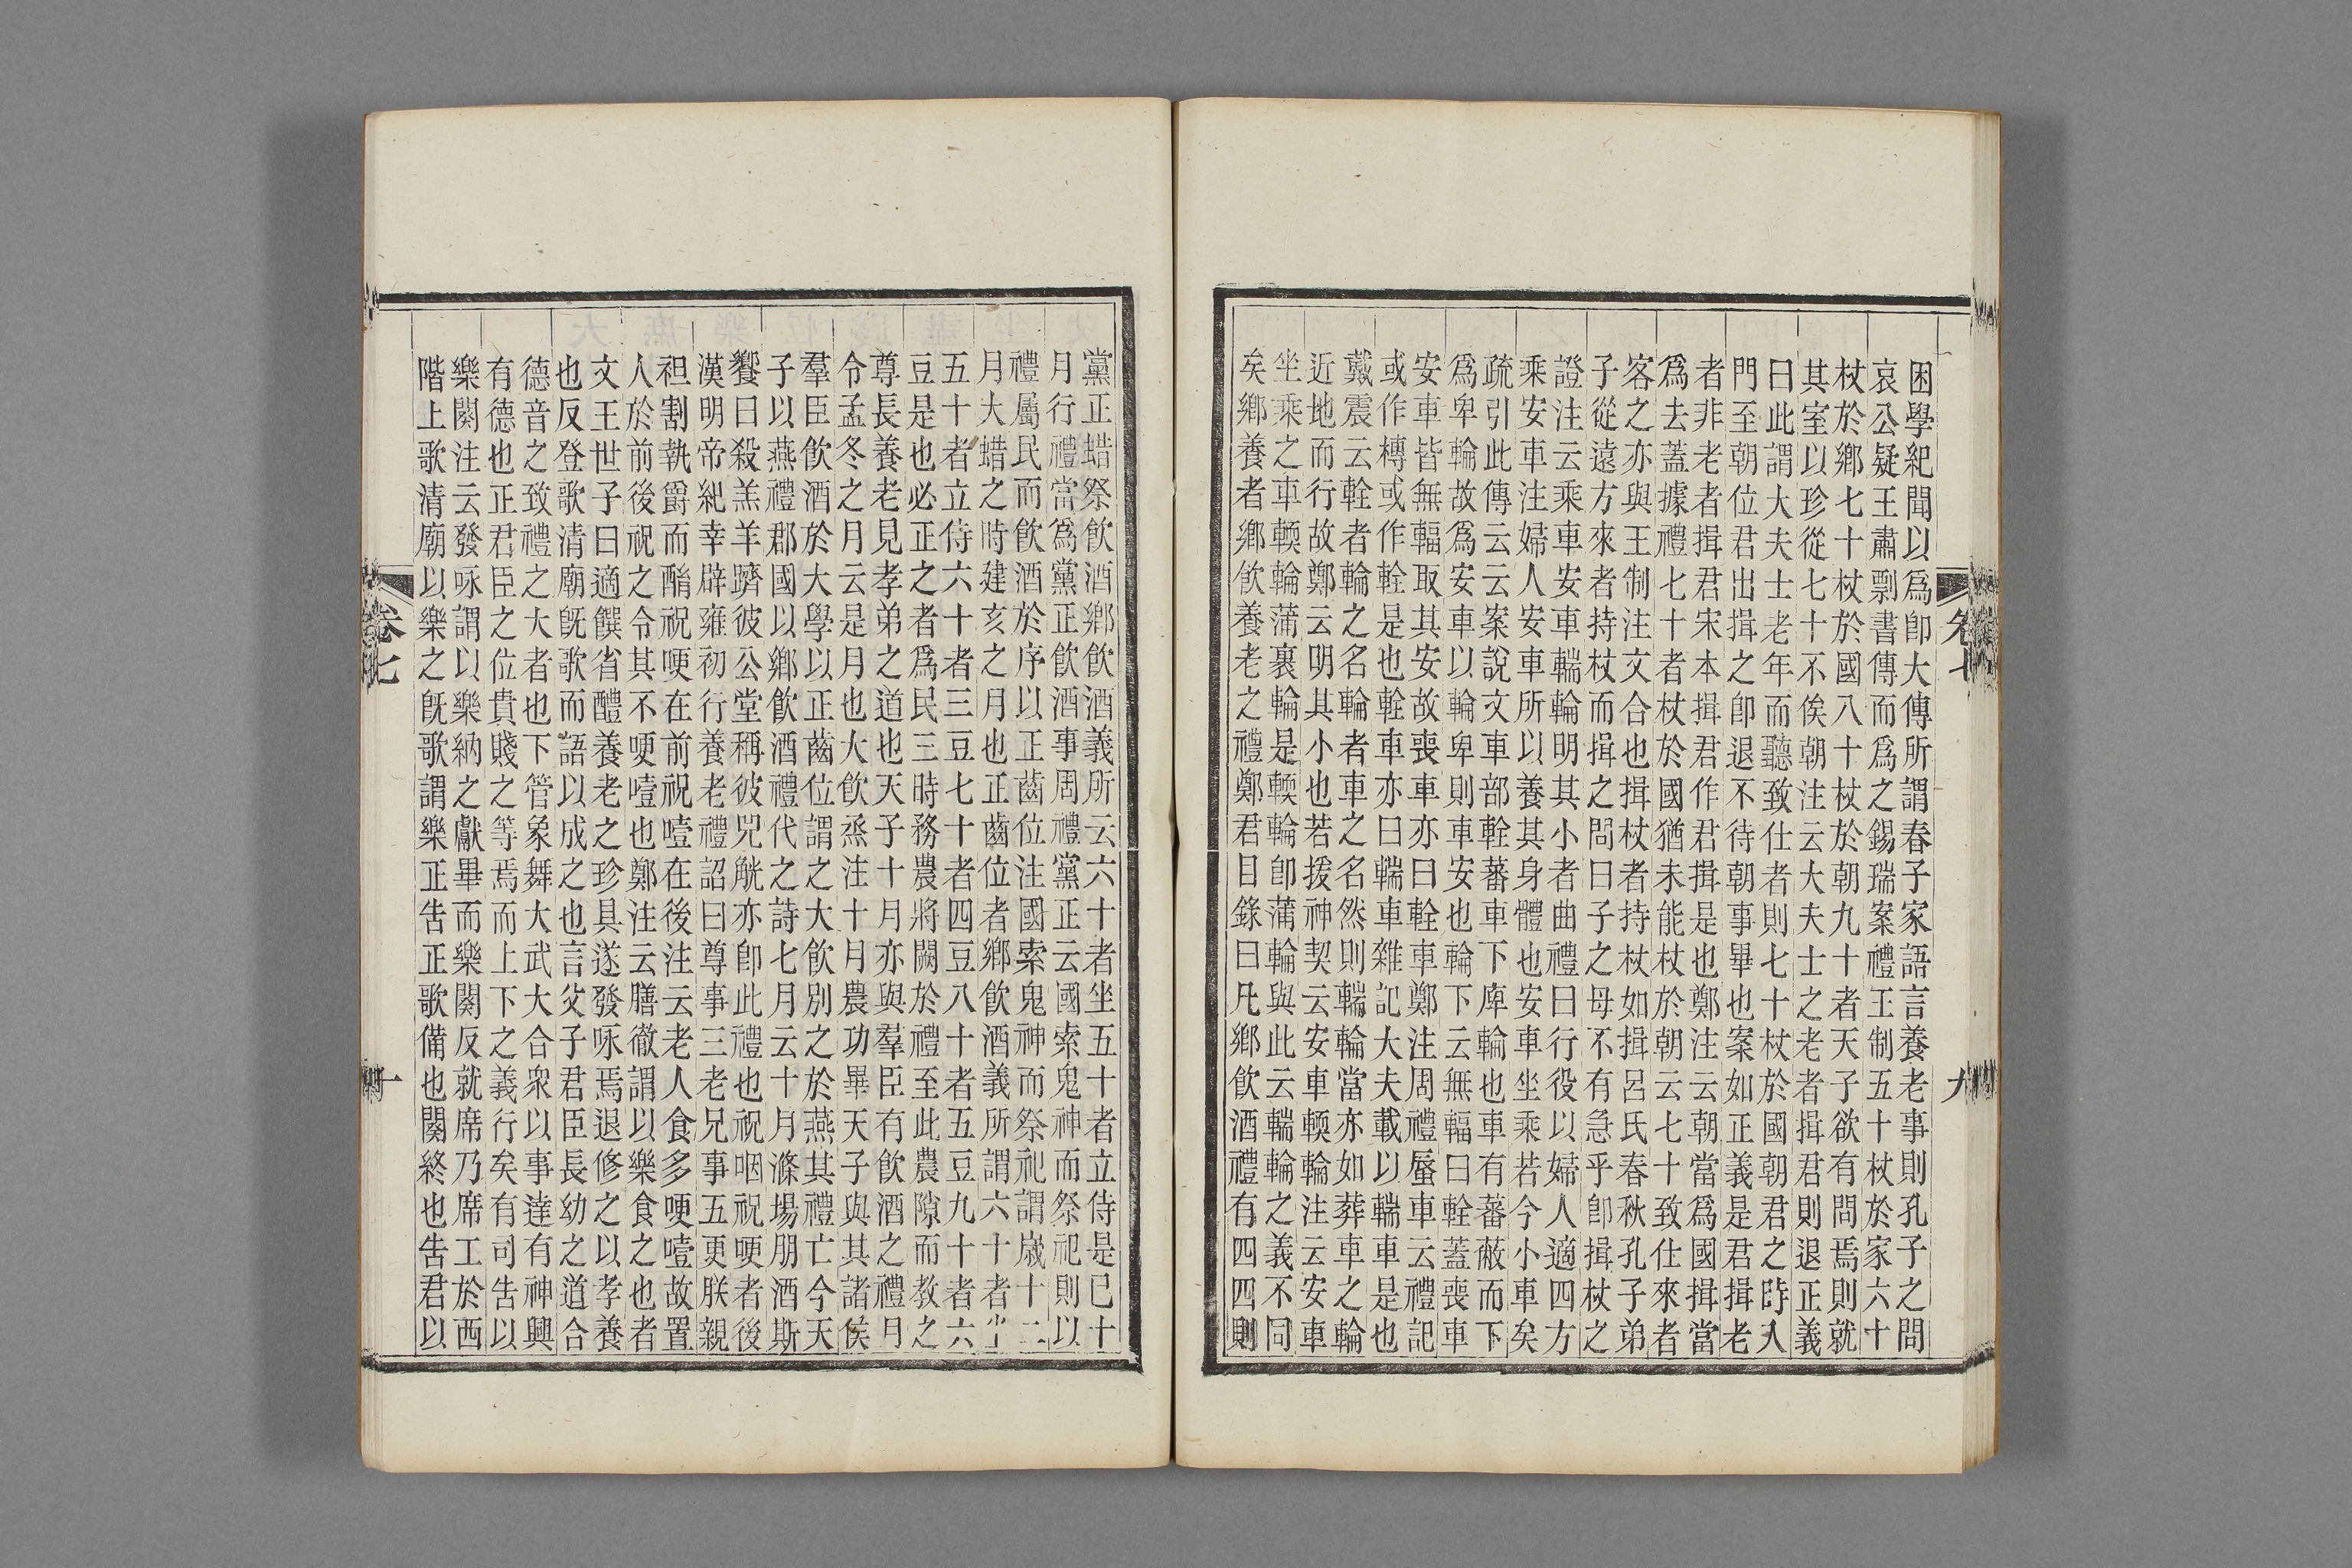 困學紀聞以爲卽大傳所謂春子家語言養老事則孔子之問
哀公疑王肅剽書傳而爲之錫瑞案禮王制五十杖於家六十
杖於鄉七十杖於國八十杖於朝九十者天子欲有問焉則就
其室以珍從七十不俟朝注云大夫士之老者揖君則退正義
曰此謂大夫士老年而聽致仕者則七十杖於國朝君之時入
門至朝位君出揖之卽退不待朝事畢也案如正義是君揖老
者非老者揖君宋本揖君作君揖是也鄭注云朝當爲國揖當
爲去蓋據禮七十者杖於國猶未能杖於朝云七十致仕來者
客之亦與王制注文合也揖杖者持杖如揖呂氏春秋孔子弟
子從遠方來者持杖而揖之問曰子之母不有急乎卽揖杖之
證注云乘車安車輲輪明其小者曲禮曰行役以婦人適四方
乘安車注婦人安車所以養其身體也安車坐乘若今小車矣
疏引此傳云云案說文車部軨蕃車下庳輪也車有蕃蔽而下
爲卑輪故爲安車以輪卑則車安也輪下云無輻曰輇蓋喪車
安車皆無輻取其安故喪車亦曰輇車鄭注周禮蜃車云禮記
或作槫或作輇是也輇車亦曰輲車雜記大夫載以輲車是也
戴震云輇者輪之名輪者車之名然則輲輪當亦如葬車之輪
近地而行故鄭云明其小也若援神契云安車輭輪注云安車
坐乘之車輭輪蒲裹輪是輭輪卽蒲輪與此云輲輪之義不同
矣鄉養者鄉飲養老之禮鄭君目錄曰凡鄉飲酒禮有四四則
卷七
九
黨正蜡祭飲酒鄉飲酒義所云六十者坐五十者立侍是已十
月行禮當爲黨正飲酒事周禮黨正云國索鬼神而祭祀則以
禮屬民而飲酒於序以正齒位注國索鬼神而祭祀謂歲十二
月大蜡之時建亥之月也正齒位者鄉飲酒義所謂六十者坐
五十者立侍六十者三豆七十者四豆八十者五豆九十者六
豆是也必正之者爲民三時務農將闕於禮至此農隙而教之
尊長養老見孝弟之道也天子十月亦與羣臣有飲酒之禮月
令孟冬之月云是月也大飲烝注十月農功畢天子與其諸侯
羣臣飲酒於大學以正齒位謂之大飲別之於燕其禮亡今天
子以燕禮郡國以鄉飲酒禮代之詩七月云十月滌場朋酒斯
饗曰殺羔羊躋彼公堂稱彼兕觥亦卽此禮也祝咽祝哽者後
漢明帝紀幸辟雍初行養老禮詔曰尊事三老兄事五更朕親
袒割執爵而酳祝哽在前祝噎在後注云老人食多哽噎故置
人於前後祝之令其不哽噎也鄭注云膳徹謂以樂食之也者
文王世子曰適饌省醴養老之珍具遂發咏焉退修之以孝養
也反登歌清廟旣歌而語以成之也言父子君臣長幼之道合
德音之致禮之大者也下管象舞大武大合衆以事達有神興
有德也正君臣之位貴賤之等焉而上下之義行矣有司告以
樂闋注云發咏謂以樂納之獻畢而樂闋反就席乃席工於西
階上歌清廟以樂之旣歌謂樂正告正歌備也闋終也告君以
卷七
十